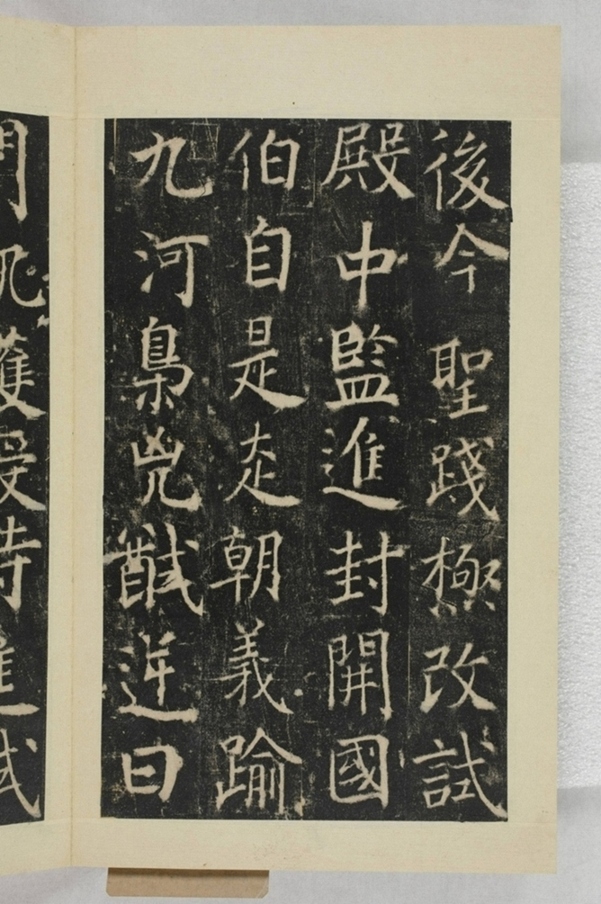 後今聖踐極改試
殿中監進封開國
伯自是走朝義踰
九河梟兇馘逆曰